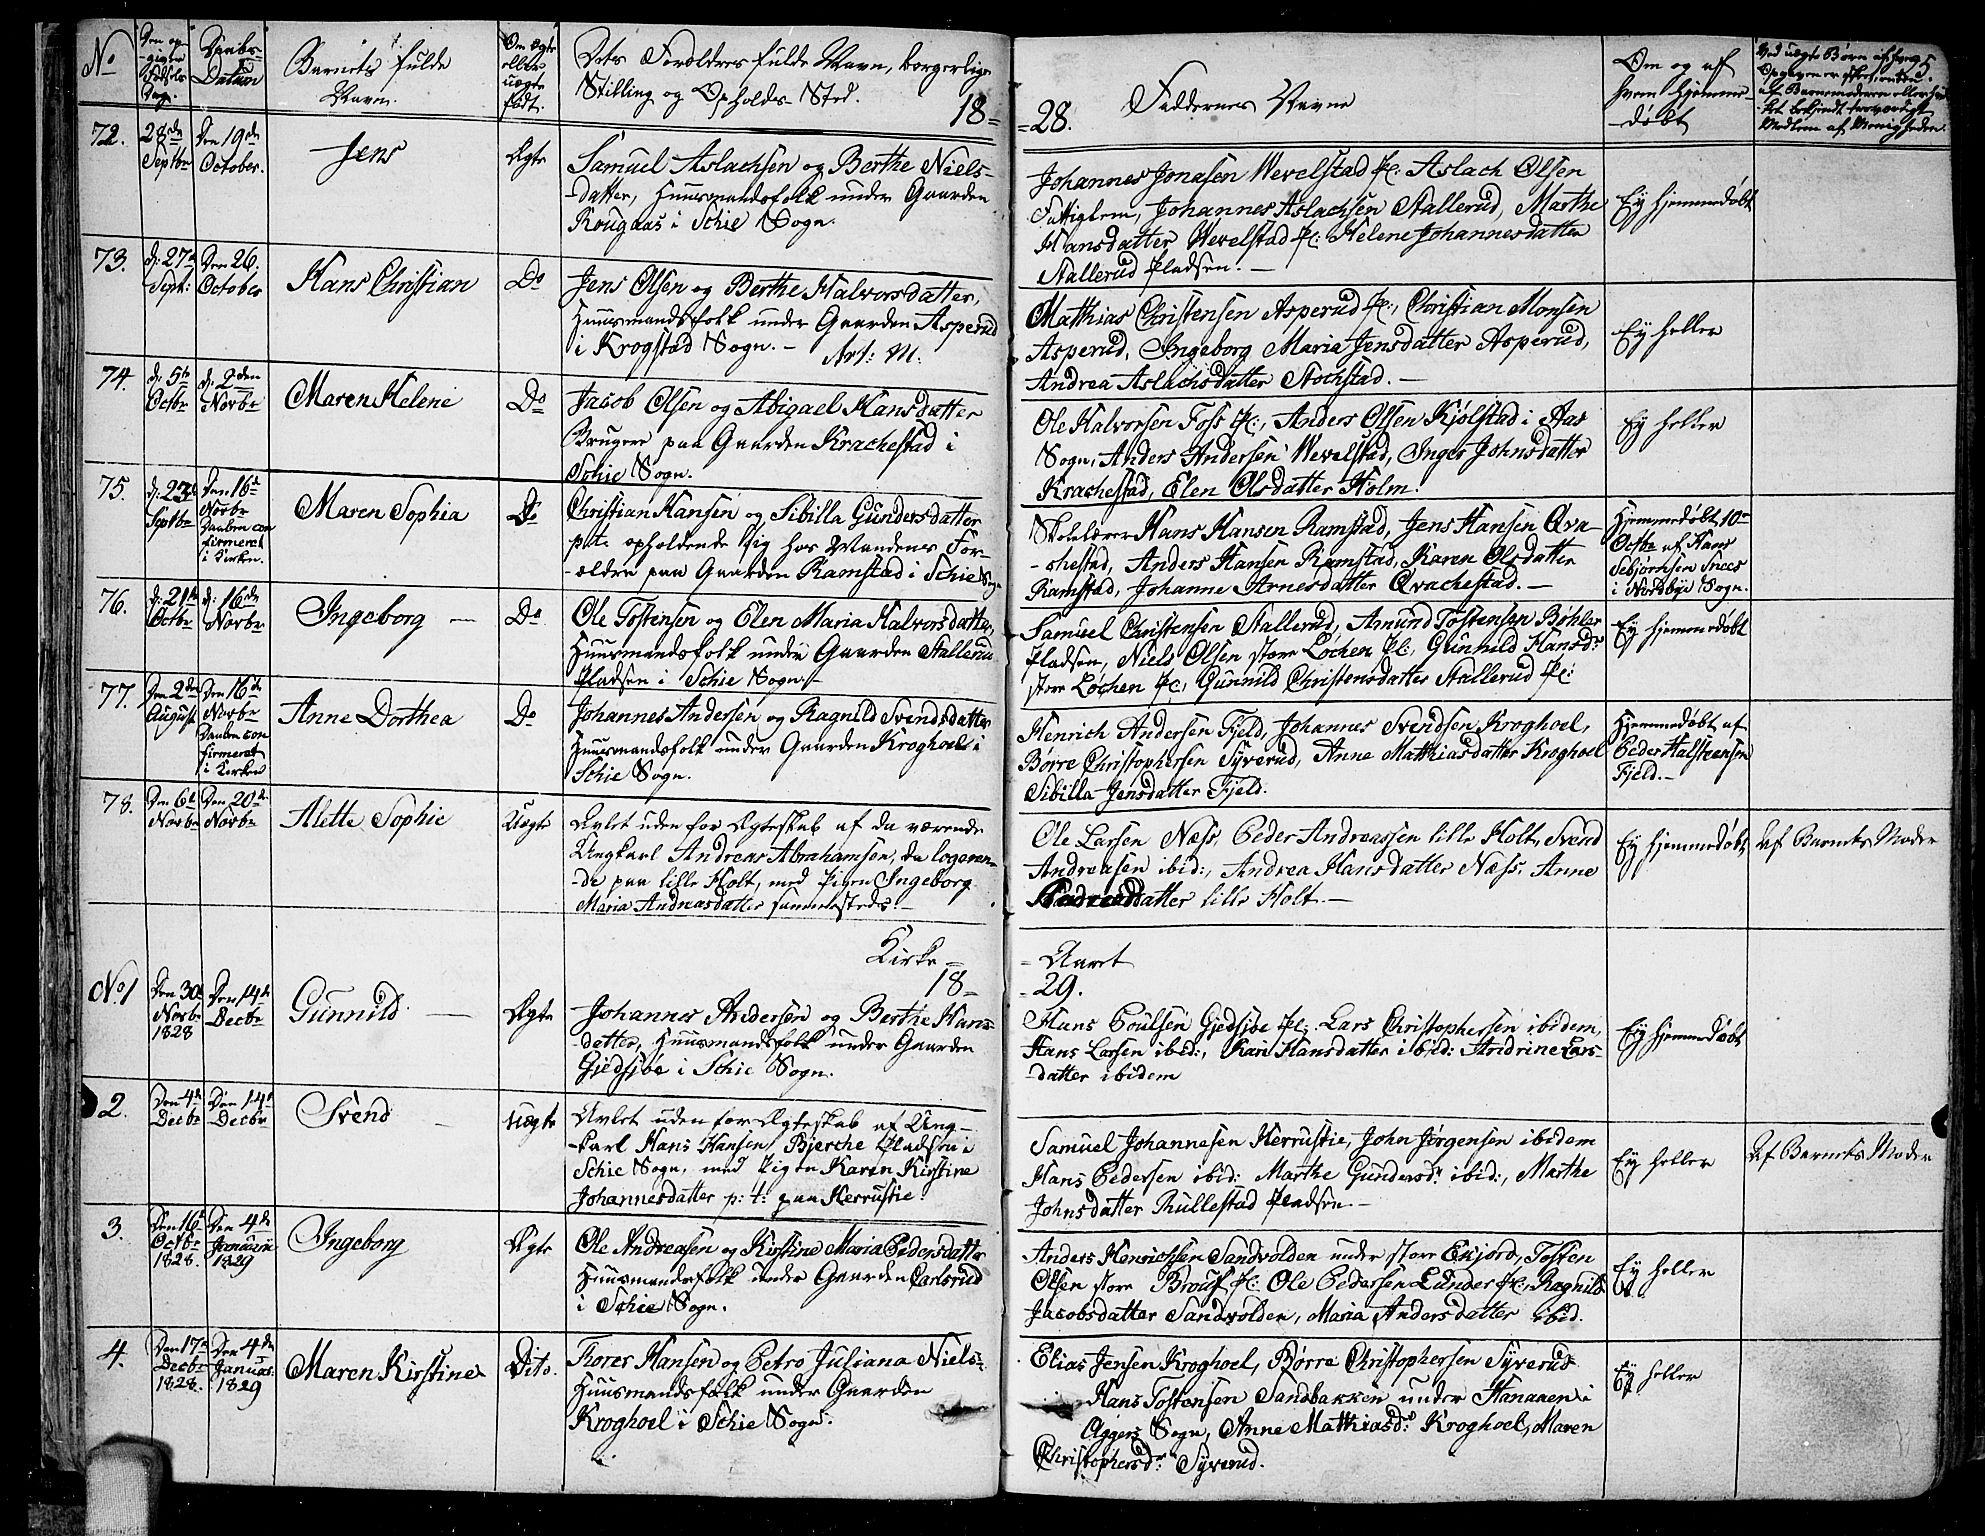 No
Den opgivne Fødsels Dag.
Daabs-Datum
Barnets fulde Navn.
Om ægte eller uægte født.
Dets Forældres fulde Navn, borgerlige
Stilling og Opholds-Sted.
18-
72.
28de Septbr
Den 19de October.
Jens
Ægte
Samuel Aslachsen og Berthe Niels-
-datter, Huusmandsfolk under Gaarden
Kougaas i Schie Sogn.
73.
d: 27de Sept:
Den 26. October
Hans Christian
Do
Jens Olsen og Berthe Halvorsdatter,
Huusmandsfolk under Gaarden Asperud
i Krogstad Sogn. -
74.
d: 5te Octbr
d: 2den Novbr
Maren Helene
Do
Jacob Olsen og Abigael Hansdatter
Brugere paa Gaarden Krachestad i
Schie Sogn.
75.
d: 23de Septbr
Den 16de Novbr Daaben confirmeret i Kirken.
Maren Sophia
Do
Christian Hansen og Sibilla Gundersdatter
p.t. opholdende sig hos Mandens For-
-ældre paa Gaarden Ramstad i Schie Sogn
76.
d: 21de Octbr
d: 16de Novbr
Ingeborg -
Do
Ole Tostensen og Elen Maria Halvorsdatter,
Huusmandsfolk under Gaarden Stallerud
Pladsen i Schie Sogn. -
77.
Den 2den August
Den 16de Novbr Daaben confirmeret i Kirken
Anne Dorthea
Do
Johannes Andersen og Ragnild Svendsdatter
Huusmandsfolk under Gaarden Kroghoel i
Schie Sogn.
78.
Den 6te Novbr
Den 20de Novbr
Alette Sophie
Uægte
Avlet uden for Ægteskab af da værende
Ungkarl Andreas Abrahamsen, da logeren-
-de paa lille Holt, med Pigen Ingeborg
Maria Andreasdatter sammesteds. -
Kirke-
18-
No 1
Den 30de Novbr 1828
Den 14de Decbr
Gunnild. -
Ægte
Johannes Andersen og Berthe Hans-
-datter, Huusmandsfolk under Gaarden
Gjedsjøe i Schie Sogn.
2.
Den 4de Decbr
Den 14de Decbr
Svend -
Uægte
Avlet uden for Ægteskab af Ung-
-karl Hans Hansen Bjerche Pladsen i
Schie Sogn, med Pigen Karen Kirstine
Johannesdatter p: t: paa Kerrustie.
3.
Den 16de Octbr 1828.
Den 4de Januarii 1829
Ingeborg
Ægte
Ole Andreasen og Kirstine Maria Pedersdatter
Huusmandsfolk under Gaarden Carlsrud
i Schie Sogn.
4.
Den 17de Decbr 1828.
Den 4de Januar. 1829
Maren Kirstine
Dito.
Thorer Hansen og Petro Juliana Niels-
Huusmandsfolk under Gaarden
Kroghoel i Schie Sogn.
-28.
Faddernes Navne
Om og af hvem hjemmedøbt
5.
Johannes Jonasen Wevelstad Pl: Aslach Olsen
Fattiglem, Johannes Aslachsen Stallerud, Marthe
Hansdatter Wevelstad Pl: Helene Johannesdatter
Stallerud Pladsen. -
Ey hjemmedøbt
Mathias Christensen Asperud Pl:, Christian Monsen
Asperud, Ingeborg Maria Jensdatter Asperud,
Andrea Aslachsdatter Stochstad. -
Ey heller
Ole Halvorsen Foss Pl:, Anders Olsen Kjølstad i Aas
Sogn, Anders Andersen Wevelstad, Inger Johnsdatter
Krachestad, Elen Olsdatter Holm.
Ey heller
Skolelærer Hans Hansen Ramstad, Jens Hansen Qva-
-chestad, Anders Hansen Ramstad, Karen Olsdatter
Ramstad, Johanne Arnesdatter Qvachestad. -
Hjemmedøbt 10de
Octbr af Hans
i Nordbye Sogn.
Samuel Christensen Stallerud, Amund Tostensen Bøhler
Pladsen, Niels Olsen store Løchen Pl:, Gunnild Hansdr
store Løchen Pl:, Gunnild Christensdatter Stallerud Pl:
Ey hjemmedøbt
Henrich Andersen Fjeld, Johannes Svendsen Kroghoel,
Børre Christophersen Syverud, Anne Matthiasdatter Kroghoel
Sibilla Jensdatter Fjeld.
Hjemmedøbt af
Peder Halsteensen
Fjeld. -
Ole Larsen Næss, Peder Andreassen lille Holt, Svend
Andreasen ibid:, Andrea Hansdatter Næss, Anne
datter lille Holt. -
Ey hjemmedøbt
Af Barnets Moder
- Aaret
- 29.
Hans Poulsen Gjedsjøe Pl:, Lars Christophersen ibidem,
Hans Larsen ibid:, Kari Hansdatter ibid: Andrine Lars-
-datter ibidem
Ey hjemmedøbt
Samuel Johannesen Kerrustie, John Jørgensen ibidem
Hans Pedersen ibid: Marthe Gundersdr ibid:, Marthe
Johnsdatter Rullestad Pladsen. -
Ey heller
Af Barnets Moder
Anders Henrichsen Sandvolden under store Exjord, Tosten
Olsen store Pl: Ole Pedersen Lunder Pl:, Ragnild
Jacobsdatter Sandvolden, Maria Andersdatter ibid.
Ey heller
Elias Jensen Kroghoel, Børre Christophersen Syverud
Hans Tostensen Sandbakken under Stanaaen i
Aggers Sogn, Anne Mathiasdr Kroghoel, Maren
Christophersdr Syverud.
Ey heller